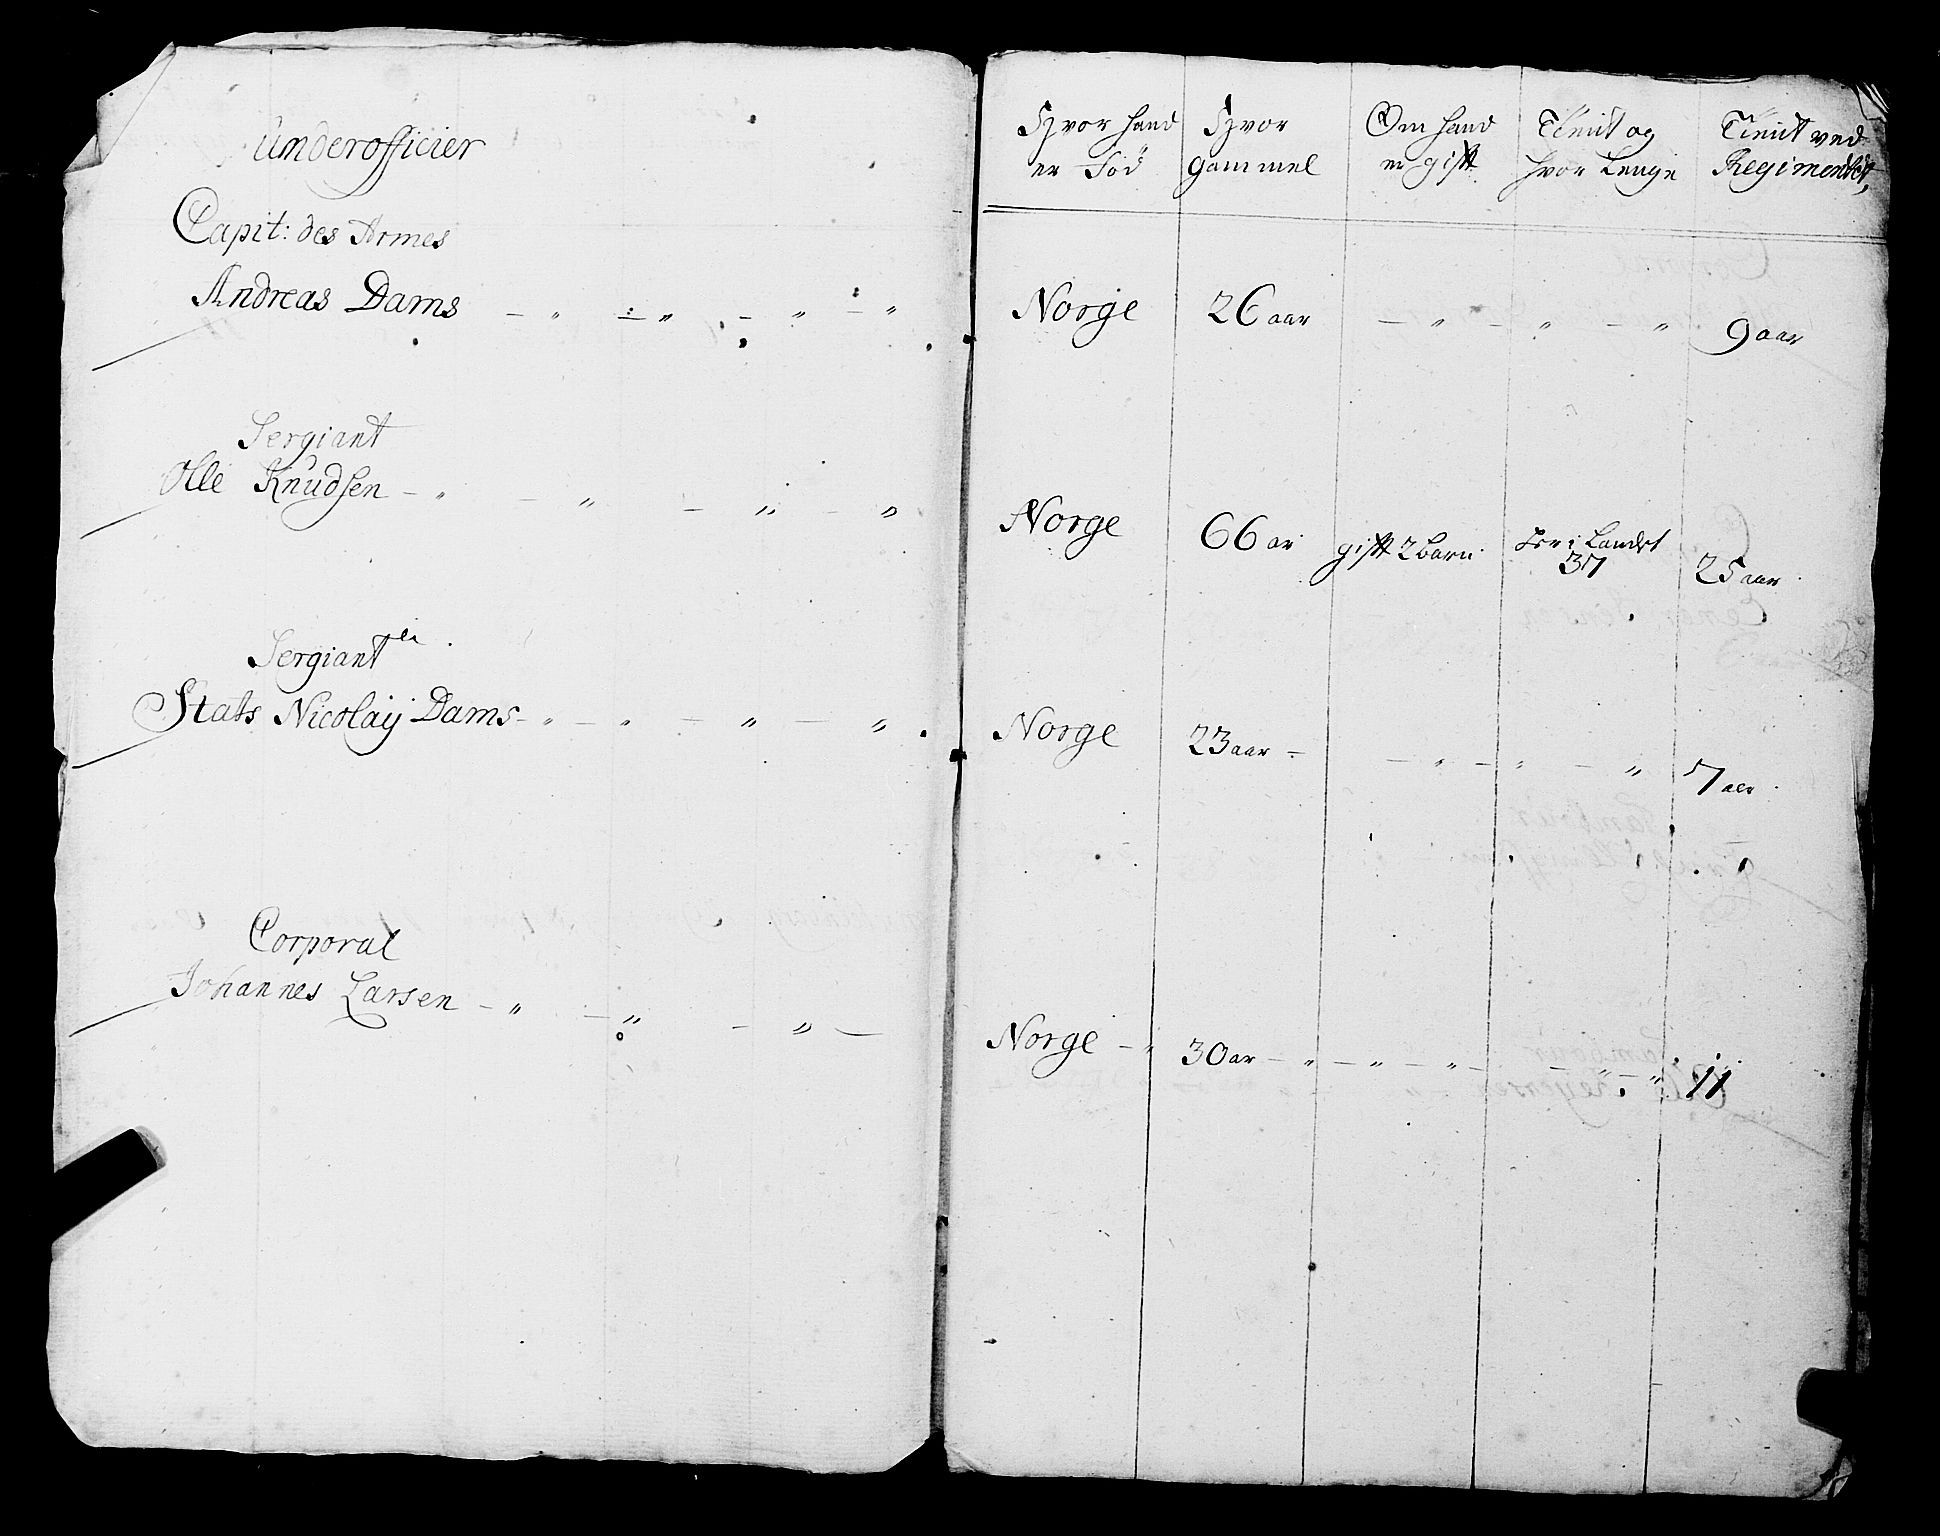 Underofficier
Capit: des Armes
Andreas Dams
Sergiant
Olle Knudsen
Sergiant
Stats Nicolaij Dams
Corporal
Johannes Larsen
Hvor hand er Föd
Hvor gammel
Om hand er gift
Tient og hvor lenge
Tient ved Regimentet,
Norge 26 aar 9 aar
Norge 66 ar gift 2 barn her i Landet 37 25 aar
Norge 23 aar 7 aar
Norge 30 ar 11